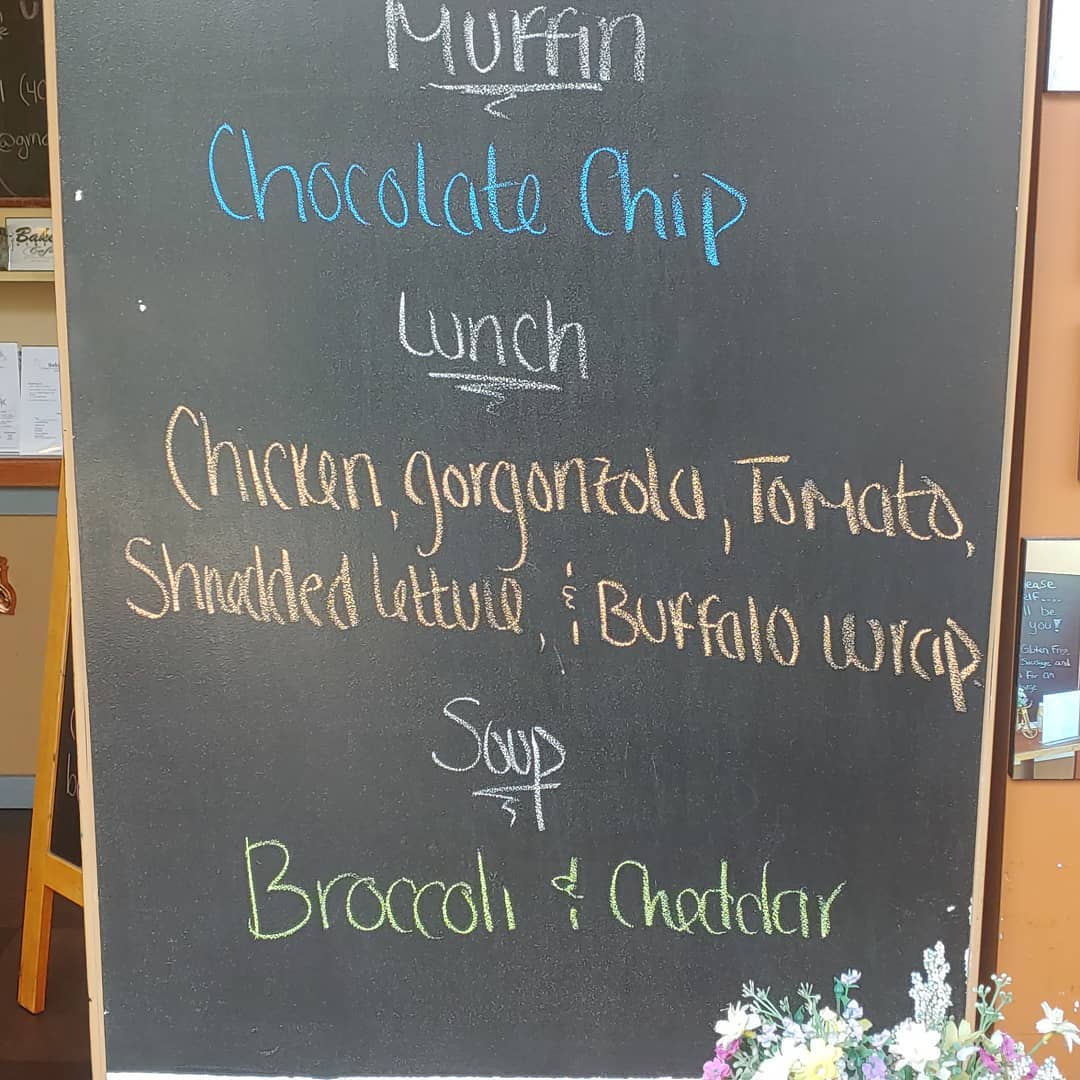 Muffin
Chocolate Chip
Lunch
Chicken, gorgonzola, Tomato,
Shredded lettuce, & Buffalo wrap
Soup
Broccoli & Cheddar
(40
@gma
Bake
Cafe
ease
lf....
ll be
you!
Gluten Free
Sausage and
For an